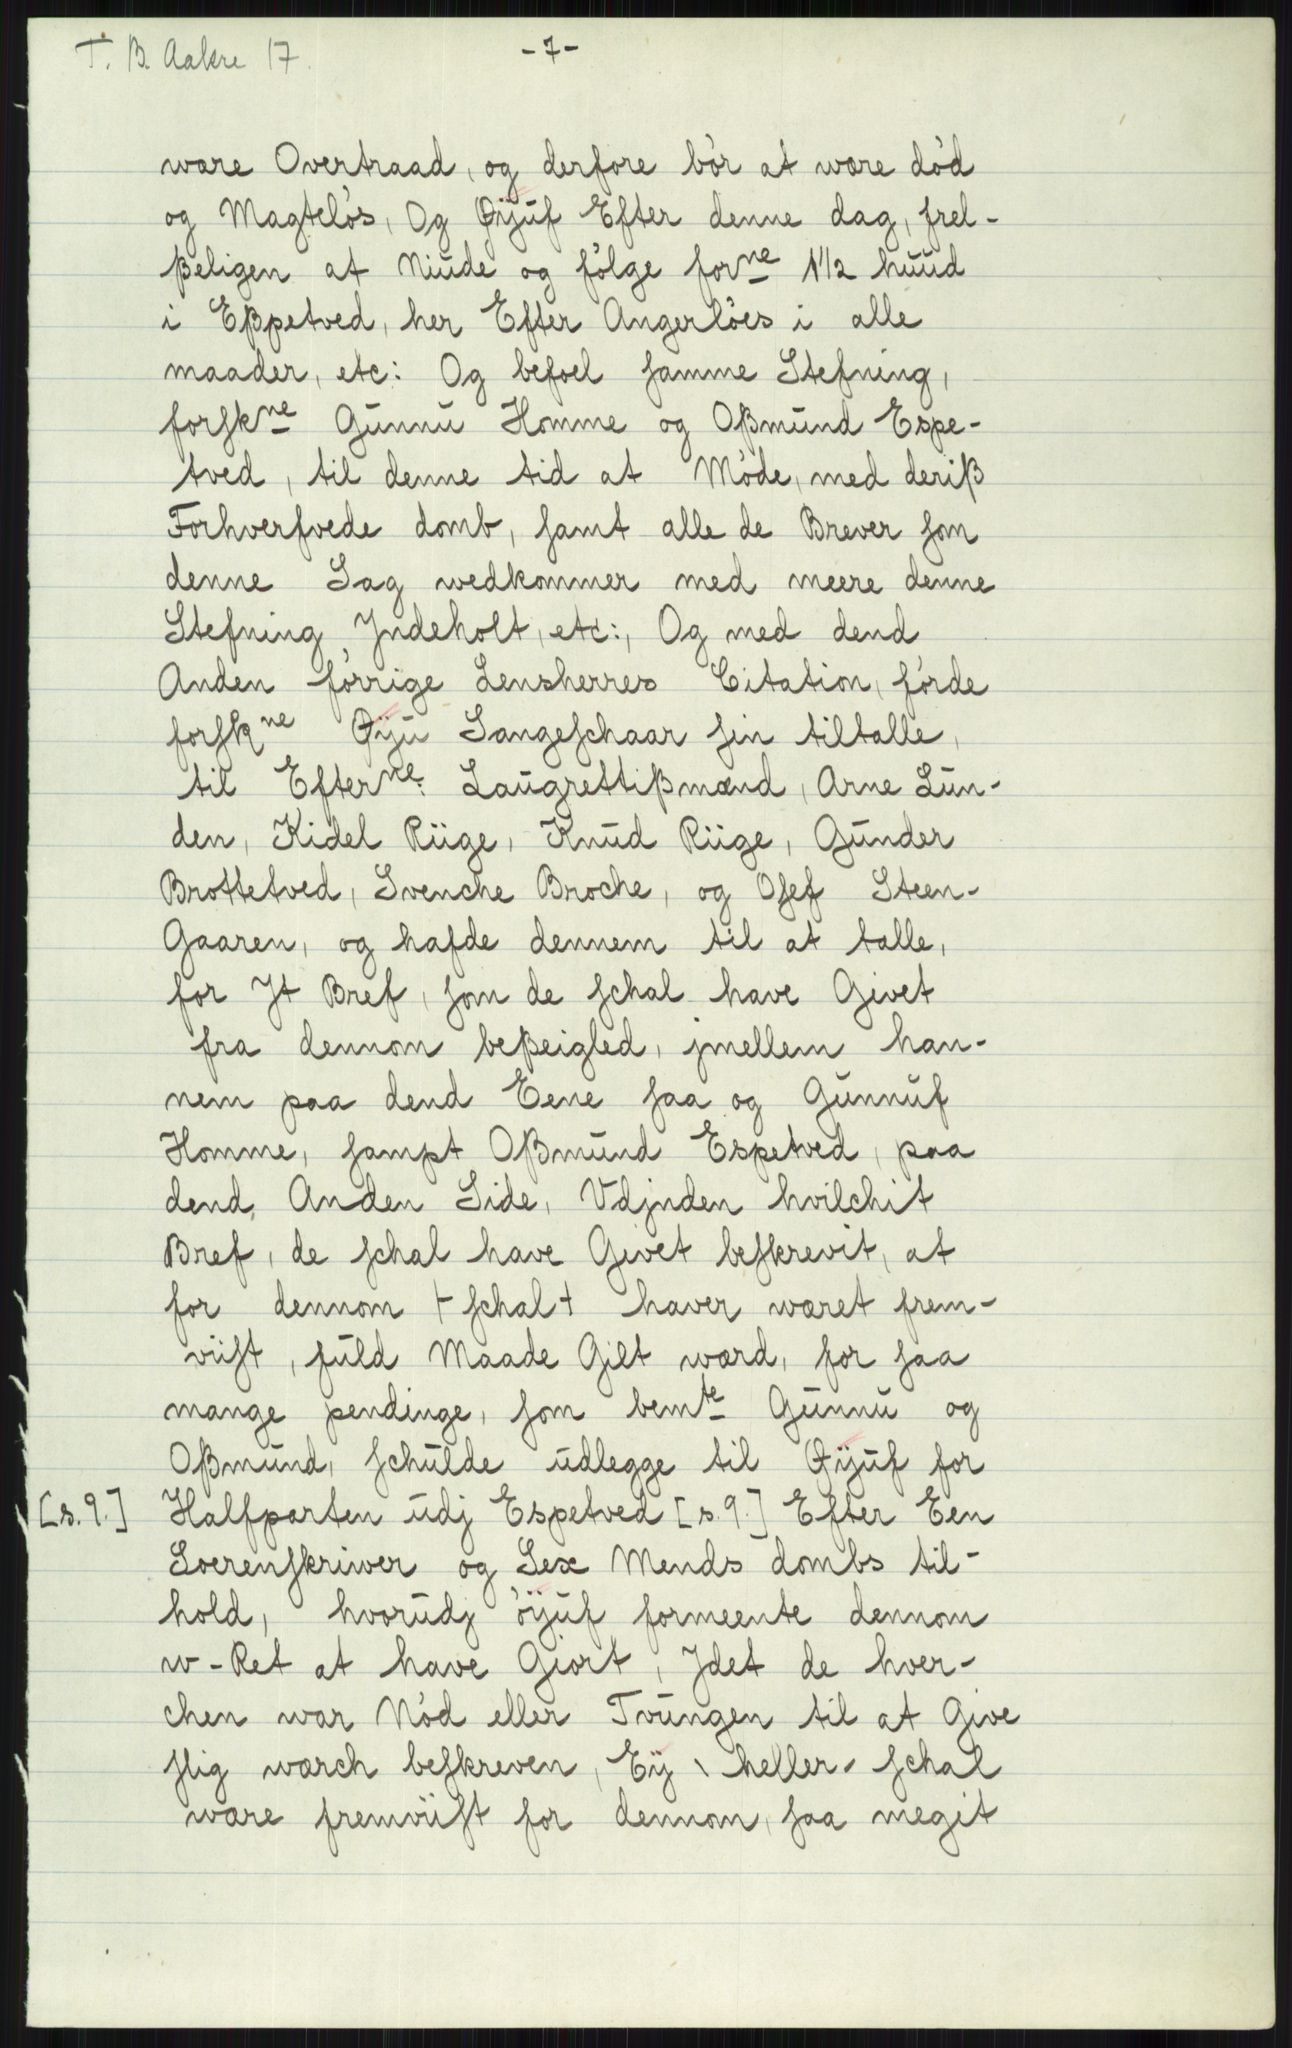 T. B. Aakre 17.
-7-
ware Overtraad, og derfore bór at wære dód
og Magteløs, Og Øÿuf Efter denne dag, frel-
ßeligen at Niude og fólge forne 1 1/2 huud
i Eßpetved, her Efter Angerlóes i alle
maader, etc: Og befoel samme Stefning,
forskne Gunnu Homme og Oßmund Espe-
tved, til denne tid at Móde, med deriß
Forhverfvede domb, samt alle de Brever som
denne Sag wedkommer med meere denne
Stefning Jndeholt, etc:, Og med dend
Anden fórrige Lensherres Citation, fórde
forskne Øÿu Langeschaar sin tiltalle,
til Efterne: Laugrettißmænd, Arne Lun-
den, Kidel Riige, Knud Riige, Gunder
Brottetved, Svenche Broche, og Osef Steen-
Gaaren, og hafde dennem til at talle,
for Jt Bref, som de schal have Givet
fra dennom beßeigled, jmellem han-
nem paa dend Eene saa og Gunnuf
Homme, sampt Oßmund Espetved, paa
dend Anden Side, Vdjnden hvilchit
Bref, de schal have Givet beskrevit, at
for dennom + schal + haver wæret frem-
viist, fuld Maade Gilt wærd, for saa
mange pendinge, som bemte Gunnu og
Oßmund, schulde udlegge til Øÿuf for
[s.9.] Halfparten udj Espetved [s.9.] Efter Een
Soerenskriwer og Sex Mends dombs til-
hold, hvorudj óÿuf formeente dennom
w-Ret at have Giort, Jdet de hver-
chen war Nód eller Tvungen til at Give
slig wærch beskreven, Eÿ heller schal
wære fremviist for dennom, saa megit